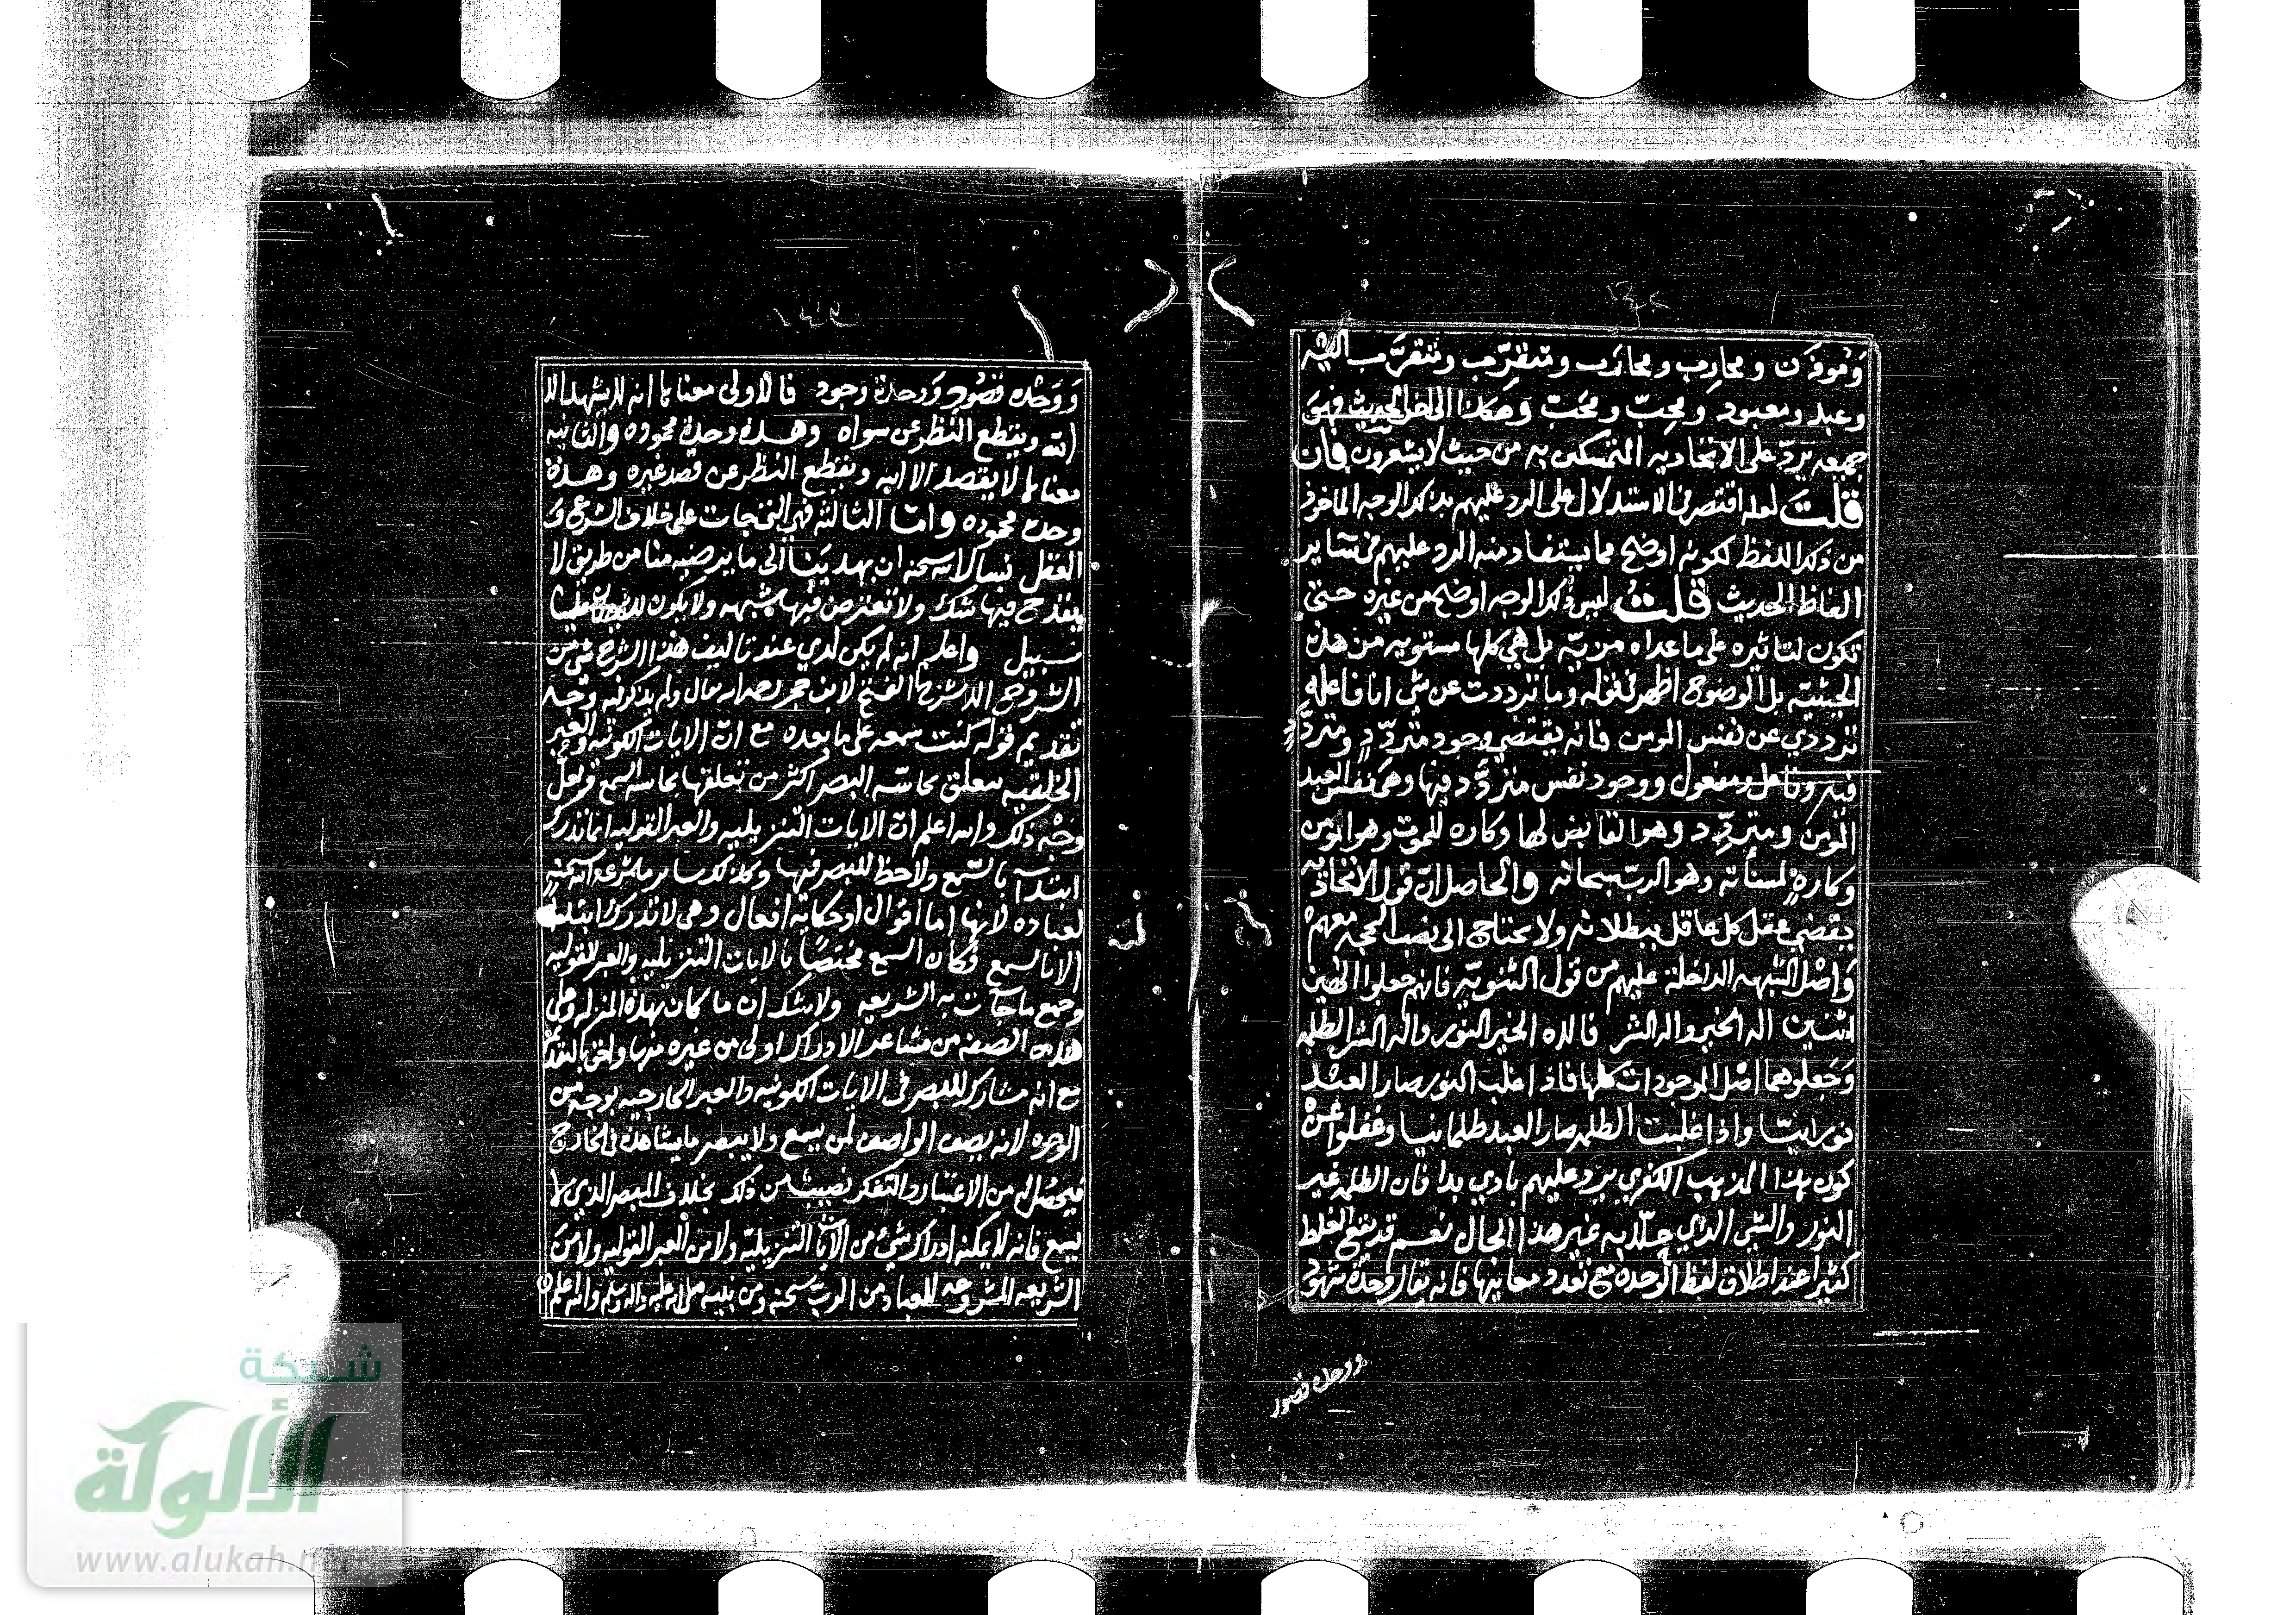 وموذن ومحارِب ومحارَب ومتقرِّب ومتقرَّب اليه
وعبد ومعبود ومحِبّ ومحَبّ وهكذا الى اخر الحديث فهو
جميعه يردّ على الاتحاديه المتمسكين به من حيث لا يشعرون فان
قلت لعله اقتصر في الاستدلال على الرد عليهم بذلك الوجه الماخوذ
من ذلك اللفظ لكونه اوضح مما يستفاد منه الرد عليهم من ساير
الفاظ الحديث قلت ليس ذلك الوجه اوضح من غيره حتى
تكون لتاثيره على ما عداه مزيّه بل هي كلها مستويه من هذه
الحيثيه بل الوضوح اظهر في قوله وما ترددت عن شي انا فاعله
ترددي عن نفس المومن فانه يقتضي وجود متردِّد ومتردَّد
فيه وفاعل ومفعول ووجود نفس متردَّد فيها وهي نفس العبد
المومن ومتردِّد وهو القابض لها وكاره للموت وهو المومن
وكاره لمسأته وهو الرب سبحانه والحاصل ان قول الاتحاديه
يقضي عقل كل عاقل ببطلانه ولا يحتاج الى نصب الحجه معهم
واصل الشبهه الداخلة عليهم من قول الثنويّه فانهم جعلوا الهين
اثنين اله الخير واله الشر فاله الخير النور واله الشر الظلمه
وجعلوهما اصل الموجودات كلها فاذا غلب النور صار العبد
نورانيّا واذا غلبت الظلمه صار العبد ظلمانيا وغفلوا عن
كون هذا المذهب الكفري يرد عليهم بادي بدا فان الظلمه غير
النور والشي الذي حلا به غير هذا الحال نعم قد يقع الغلط
كثيرا عند اطلاق لفظ الوحده مع تعدد معانيها فانه يقال وحدة شهود
ووحدة قصود
ووحدة قصود ووحدة وجود فالاولى معناها انه لا يشهد الا
الله ويقطع النظر عن سواه وهذه وحدة محموده والثانيه
معناها لا يقصد الا اليه ويقطع النظر عن قصد غيره وهذه
وحدة محموده وامّا الثالثه فهي التي جات على خلاف الشرع و
العقل نسال الله سبحنه ان يهدينا الى ما يرضيه منا من طريق لا
يقدح فيها شك ولا تعترض فيها شبهه ولا يكون للشيطان علينا
سبيل واعلم انه لم يكن لدي عند تاليف هذا الشرح شي من
الشروح الا شرح الفتح لابن حجر رحمه الله تعالى ولم يذكر فيه وجه
تقديم قوله كنت سمعه على ما بعده مع انّ الايات الكونيه والعبر
الخلقيه متعلق بحاسّه البصر اكثر من تعلقها بحاسه السمع ولعل
وجه ذلك والله اعلم انّ الايات التنزيليه والعبر القوليه انما تدرك
ابتدآ بالسّمع ولا حظ للبصر فيها وكذلك ساير ما شرعه الله سبحنه
لعباده لانها اما اقوال او حكاية افعال وهي لا تدرك ابتدآ
الا بالسمع فكان السمع مختصًا بالايات التنزيليه والعبر القوليه
وجميع ما جآت به الشريعه ولا شك ان ما كان بهذه المنزله وعلى
هذه الصفه من مشاعر الادراك اولى من غيره منها واحق بالتقديم
مع انه مشارك للبصر في الايات الكونيه والعبر الخارجيه بوجه من
الوجوه لانه يصف الواصف لمن يسمع ولا يبصر ما يشاهده في الخارج
فيحصل له من الاعتبار والتفكر نصيب من ذلك بخلاف المبصر الذي لا
يسمع فانه لا يمكنه ادراك شيء من الايات التنزيليّه ولا من العبر القوليه ولا من
الشريعه المشروعه للعباد من الرب سبحنه ومن نبيه صلى الله عليه واله وسلم والله اعلم
شبكة
الألوكة